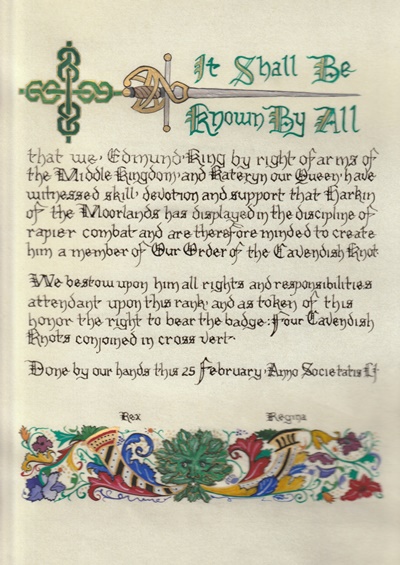 It Shall Be
Known By All
that we, Edmund King by right of arms of
the Middle Kingdom, and Kateryn our Queen, have
witnessed skill, devotion and support that Harkin
of the Moorlands has displayed in the discipline of
rapier combat and are therefore minded to create
him a member of Our Order of the Cavendish Knot
We bestow upon him all rights and responsibilities
attendant upon this rank, and as token of this
honor the right to bear the badge: Four Cavendish
Knots conjoined in cross vert.
Done by our hands this 25 February, Anno Societatis LI
Rex Regina